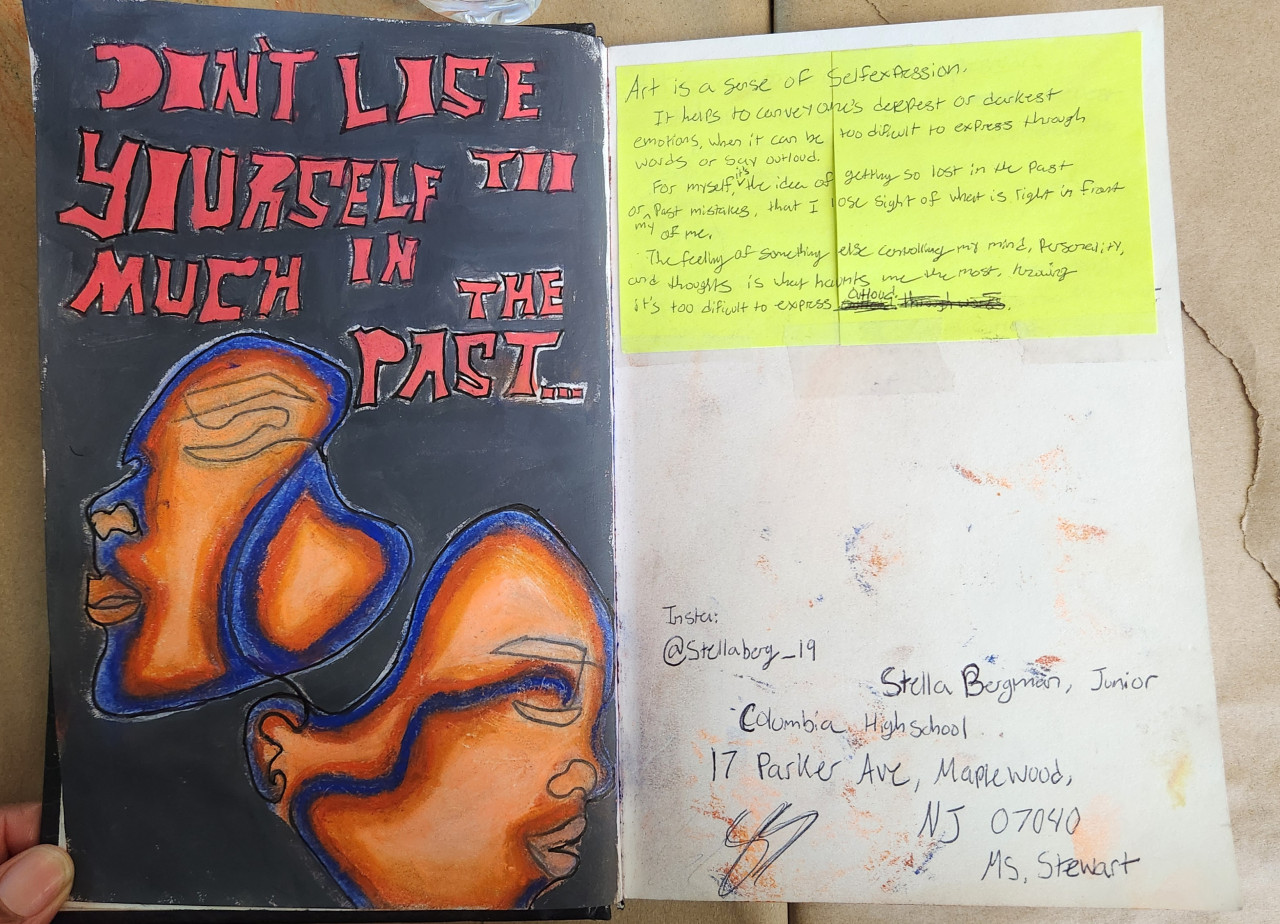 DON'T LOSE
YOURSELF TOO
MUCH IN THE
PAST...
Art is a sense of Selfexpession.
It helps to convey one's deepest or darkest
emotions, when it can be too dificult to express through
words or say outloud.
For myself, it's the idea of getting so lost in the Past
or my Past mistakes, that I lose sight of what is right in front
of me.
The feeling of something else controlling my mind, Personality,
and thoughts is what haunts me the most, knowing
it's too dificult to express outloud.
Insta:
@Stellaberg_19
Stella Bergman, Junior
Columbia Highschool
17 Parker Ave, Maplewood,
NJ 07040
Ms. Stewart